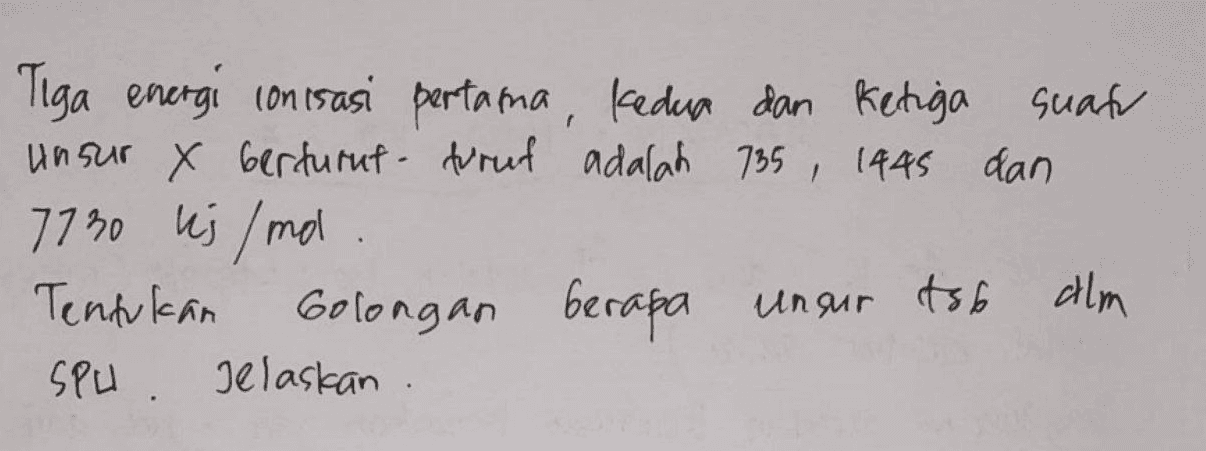 Tiga energi ionisasi pertama, kedua dan ketiga suatu
unsur X berturut-turut adalah 735, 1445 dan
7730 kj/mol.
Tentukan Golongan berapa unsur tsb dlm
SPU. Jelaskan.